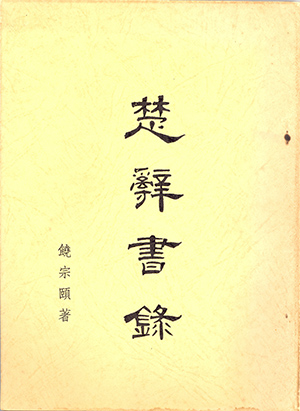 楚辭書錄
饒宗頤著